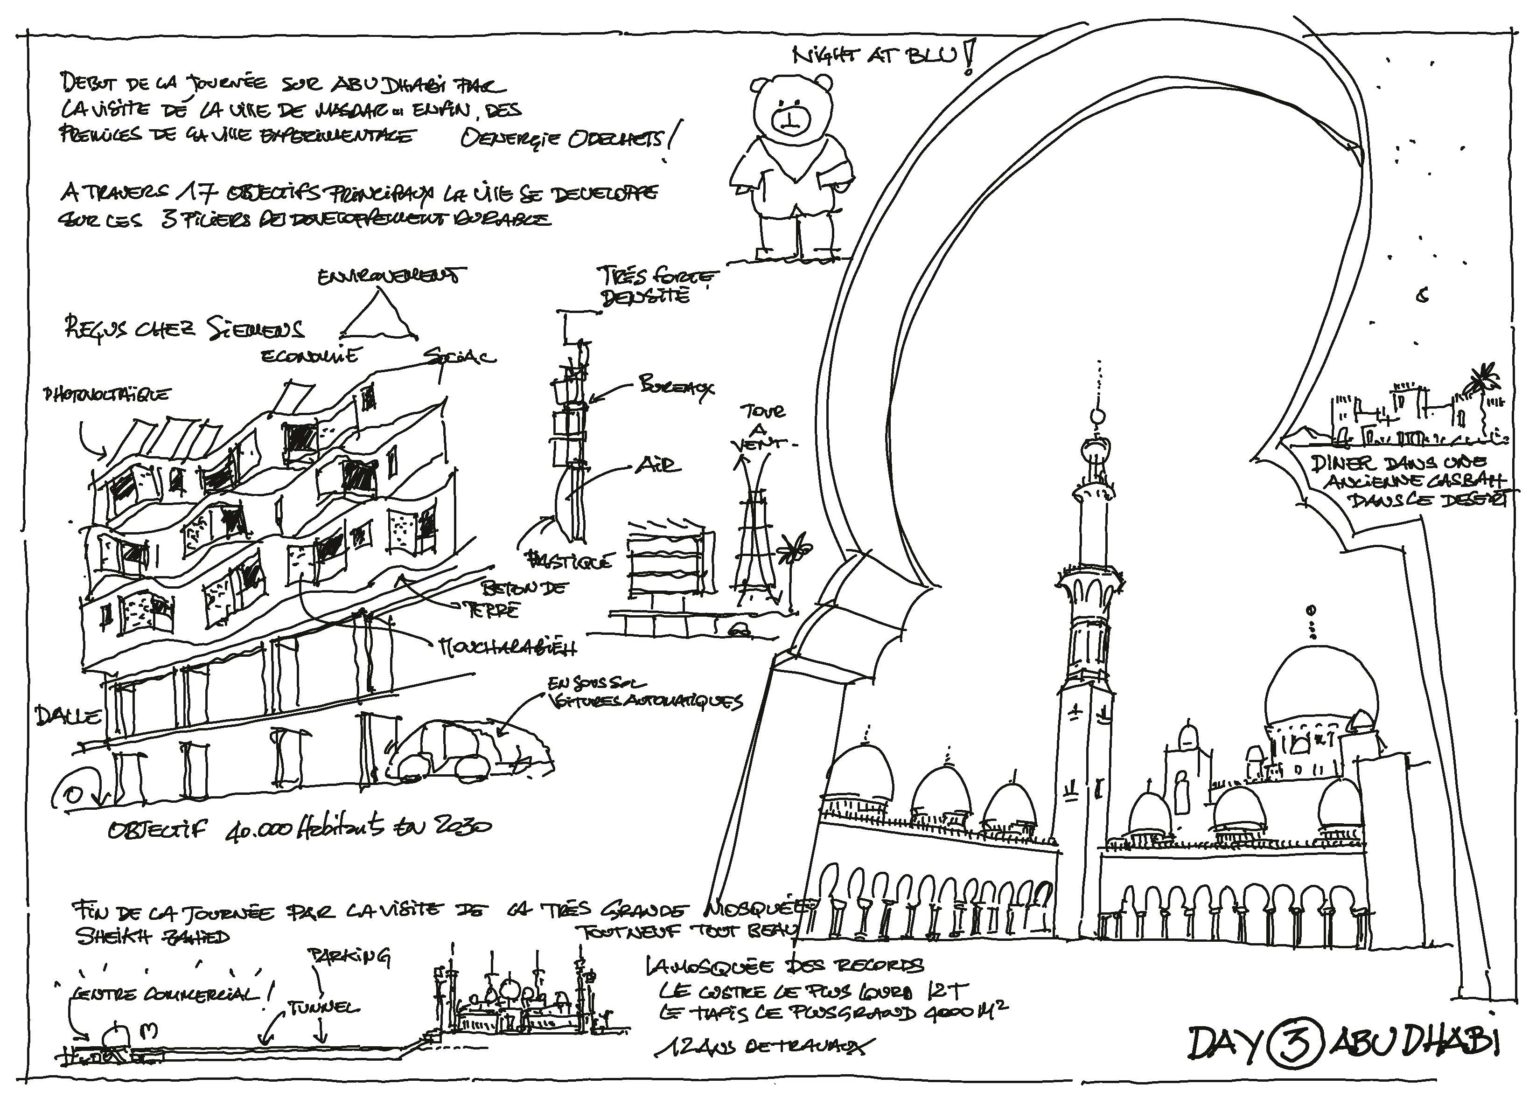 NIGHT AT BLU !
DEBUT DE LA JOURNÉE SUR ABU DHABI PAR
LA VISITE DE LA VILLE DE MASDAR ENFIN, DES
PREMICES DE LA VILLE EXPERIMENTALE 0 ENERGIE 0 DECHETS !
A TRAVERS 17 OBJECTIFS PRINCIPAUX LA VILLE SE DEVELOPPE
SUR LES 3 PILIERS DU DEVELOPPEMENT DURABLE
ENVIRONEMENT
REÇUS CHEZ SIEMENS
ECONOMIE
SOCIAL
TRÉS FORTE
DENSITÉ
PHOTOVOLTAÏQUE
BUREAUX
AIR
TOUR
A
VENT
PLASTIQUE
BETON DE
TERRE
MOUCHARABIEH
EN SOUS SOL
VOITURES AUTOMATIQUES
DALLE
OBJECTIF 40.000 Habitants EN 2030
DINER DANS UNE
ANCIENNE CASBAH
DANS LE DESERT
FIN DE LA JOURNÉE PAR LA VISITE DE LA TRÉS GRANDE MOSQUÉE
SHEIKH ZAHIED TOUT NEUF TOUT BEAU
PARKING
CENTRE COMMERCIAL !
TUNNEL
M
LA MOSQUÉE DES RECORDS
LE LUSTRE LE PLUS LOURD 12T
LE TAPIS LE PLUS GRAND 4000 M²
12 ANS DE TRAVAUX
DAY 3 ABU DHABI